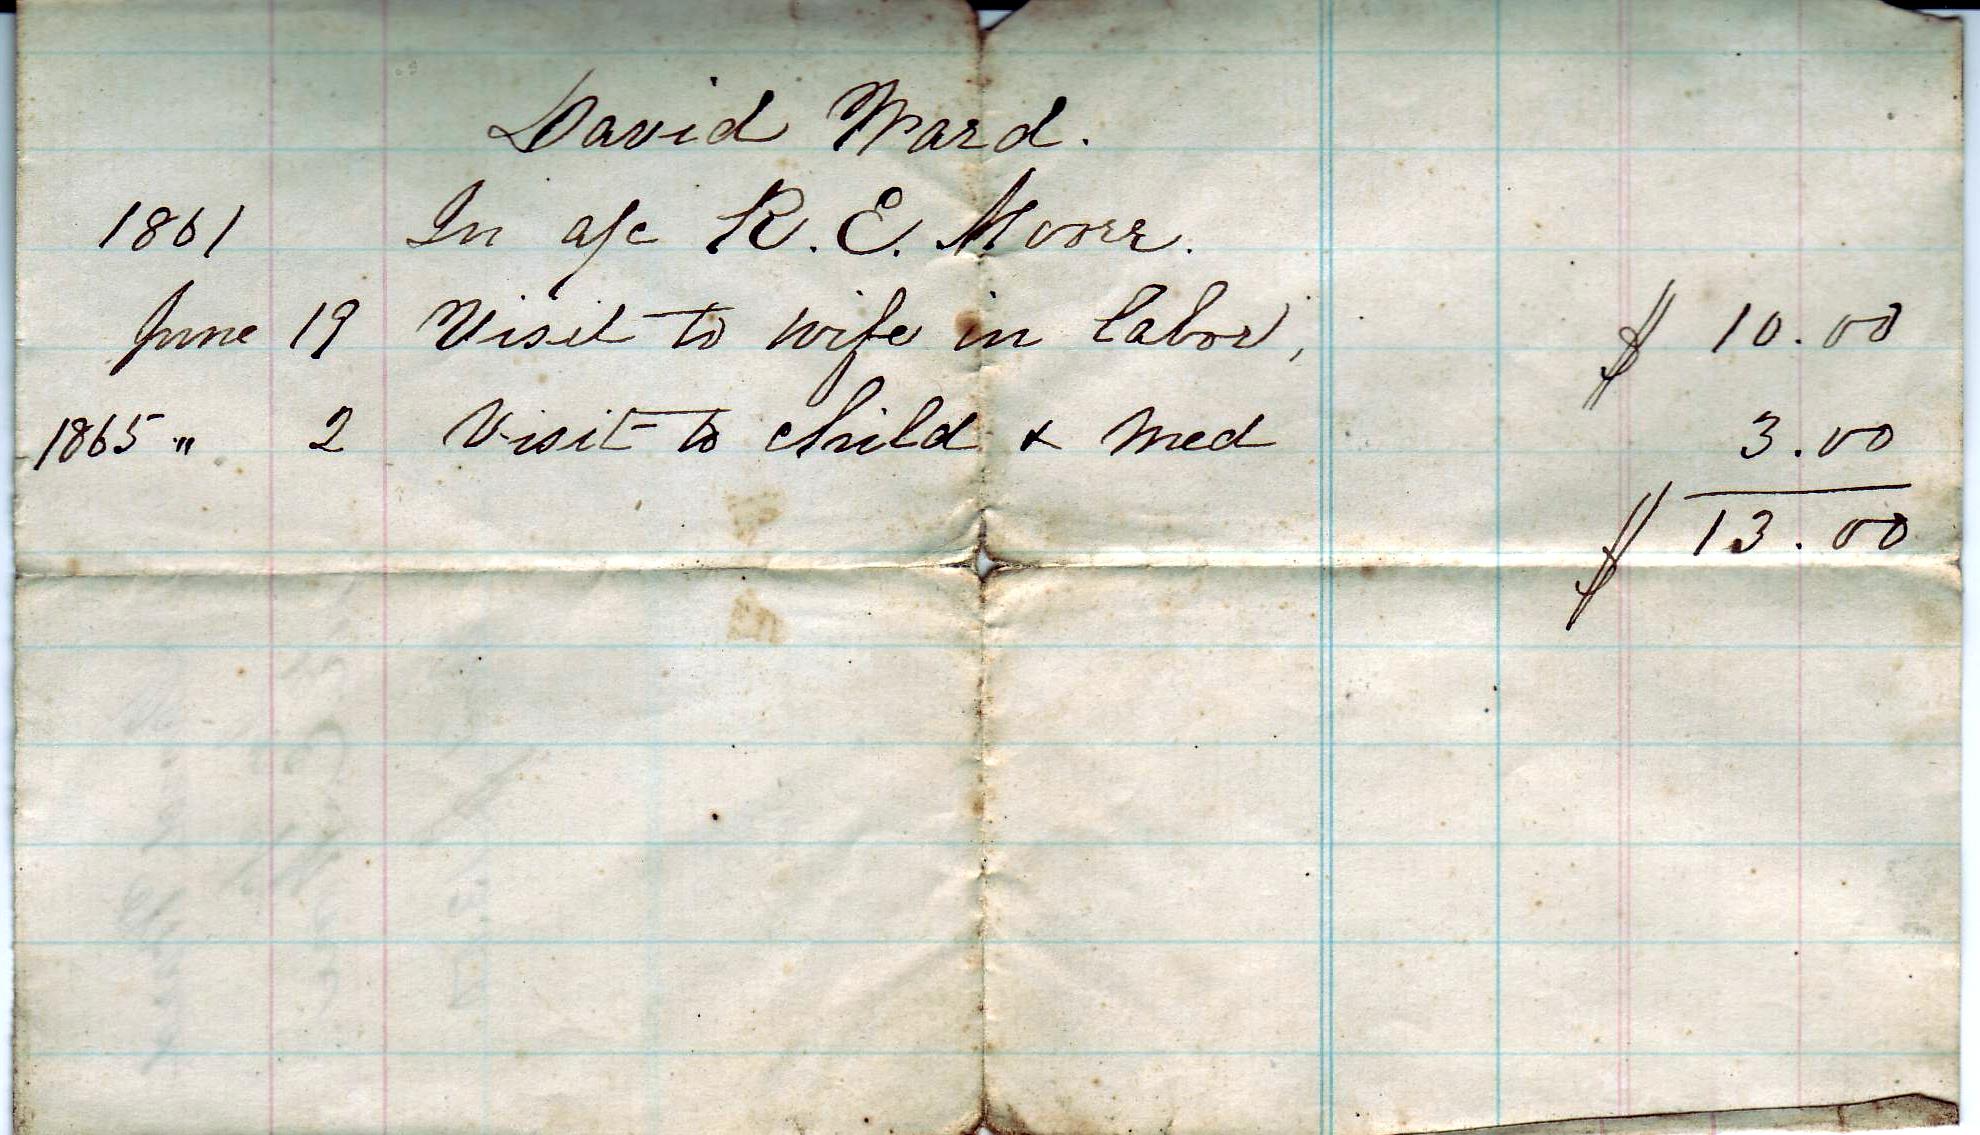 David Ward.
1861 In a/c R. E. Moore.
June 19 Visit to wife in labor, $ 10.00
1865 " 2 Visit to child & Med 3.00
$ 13.00